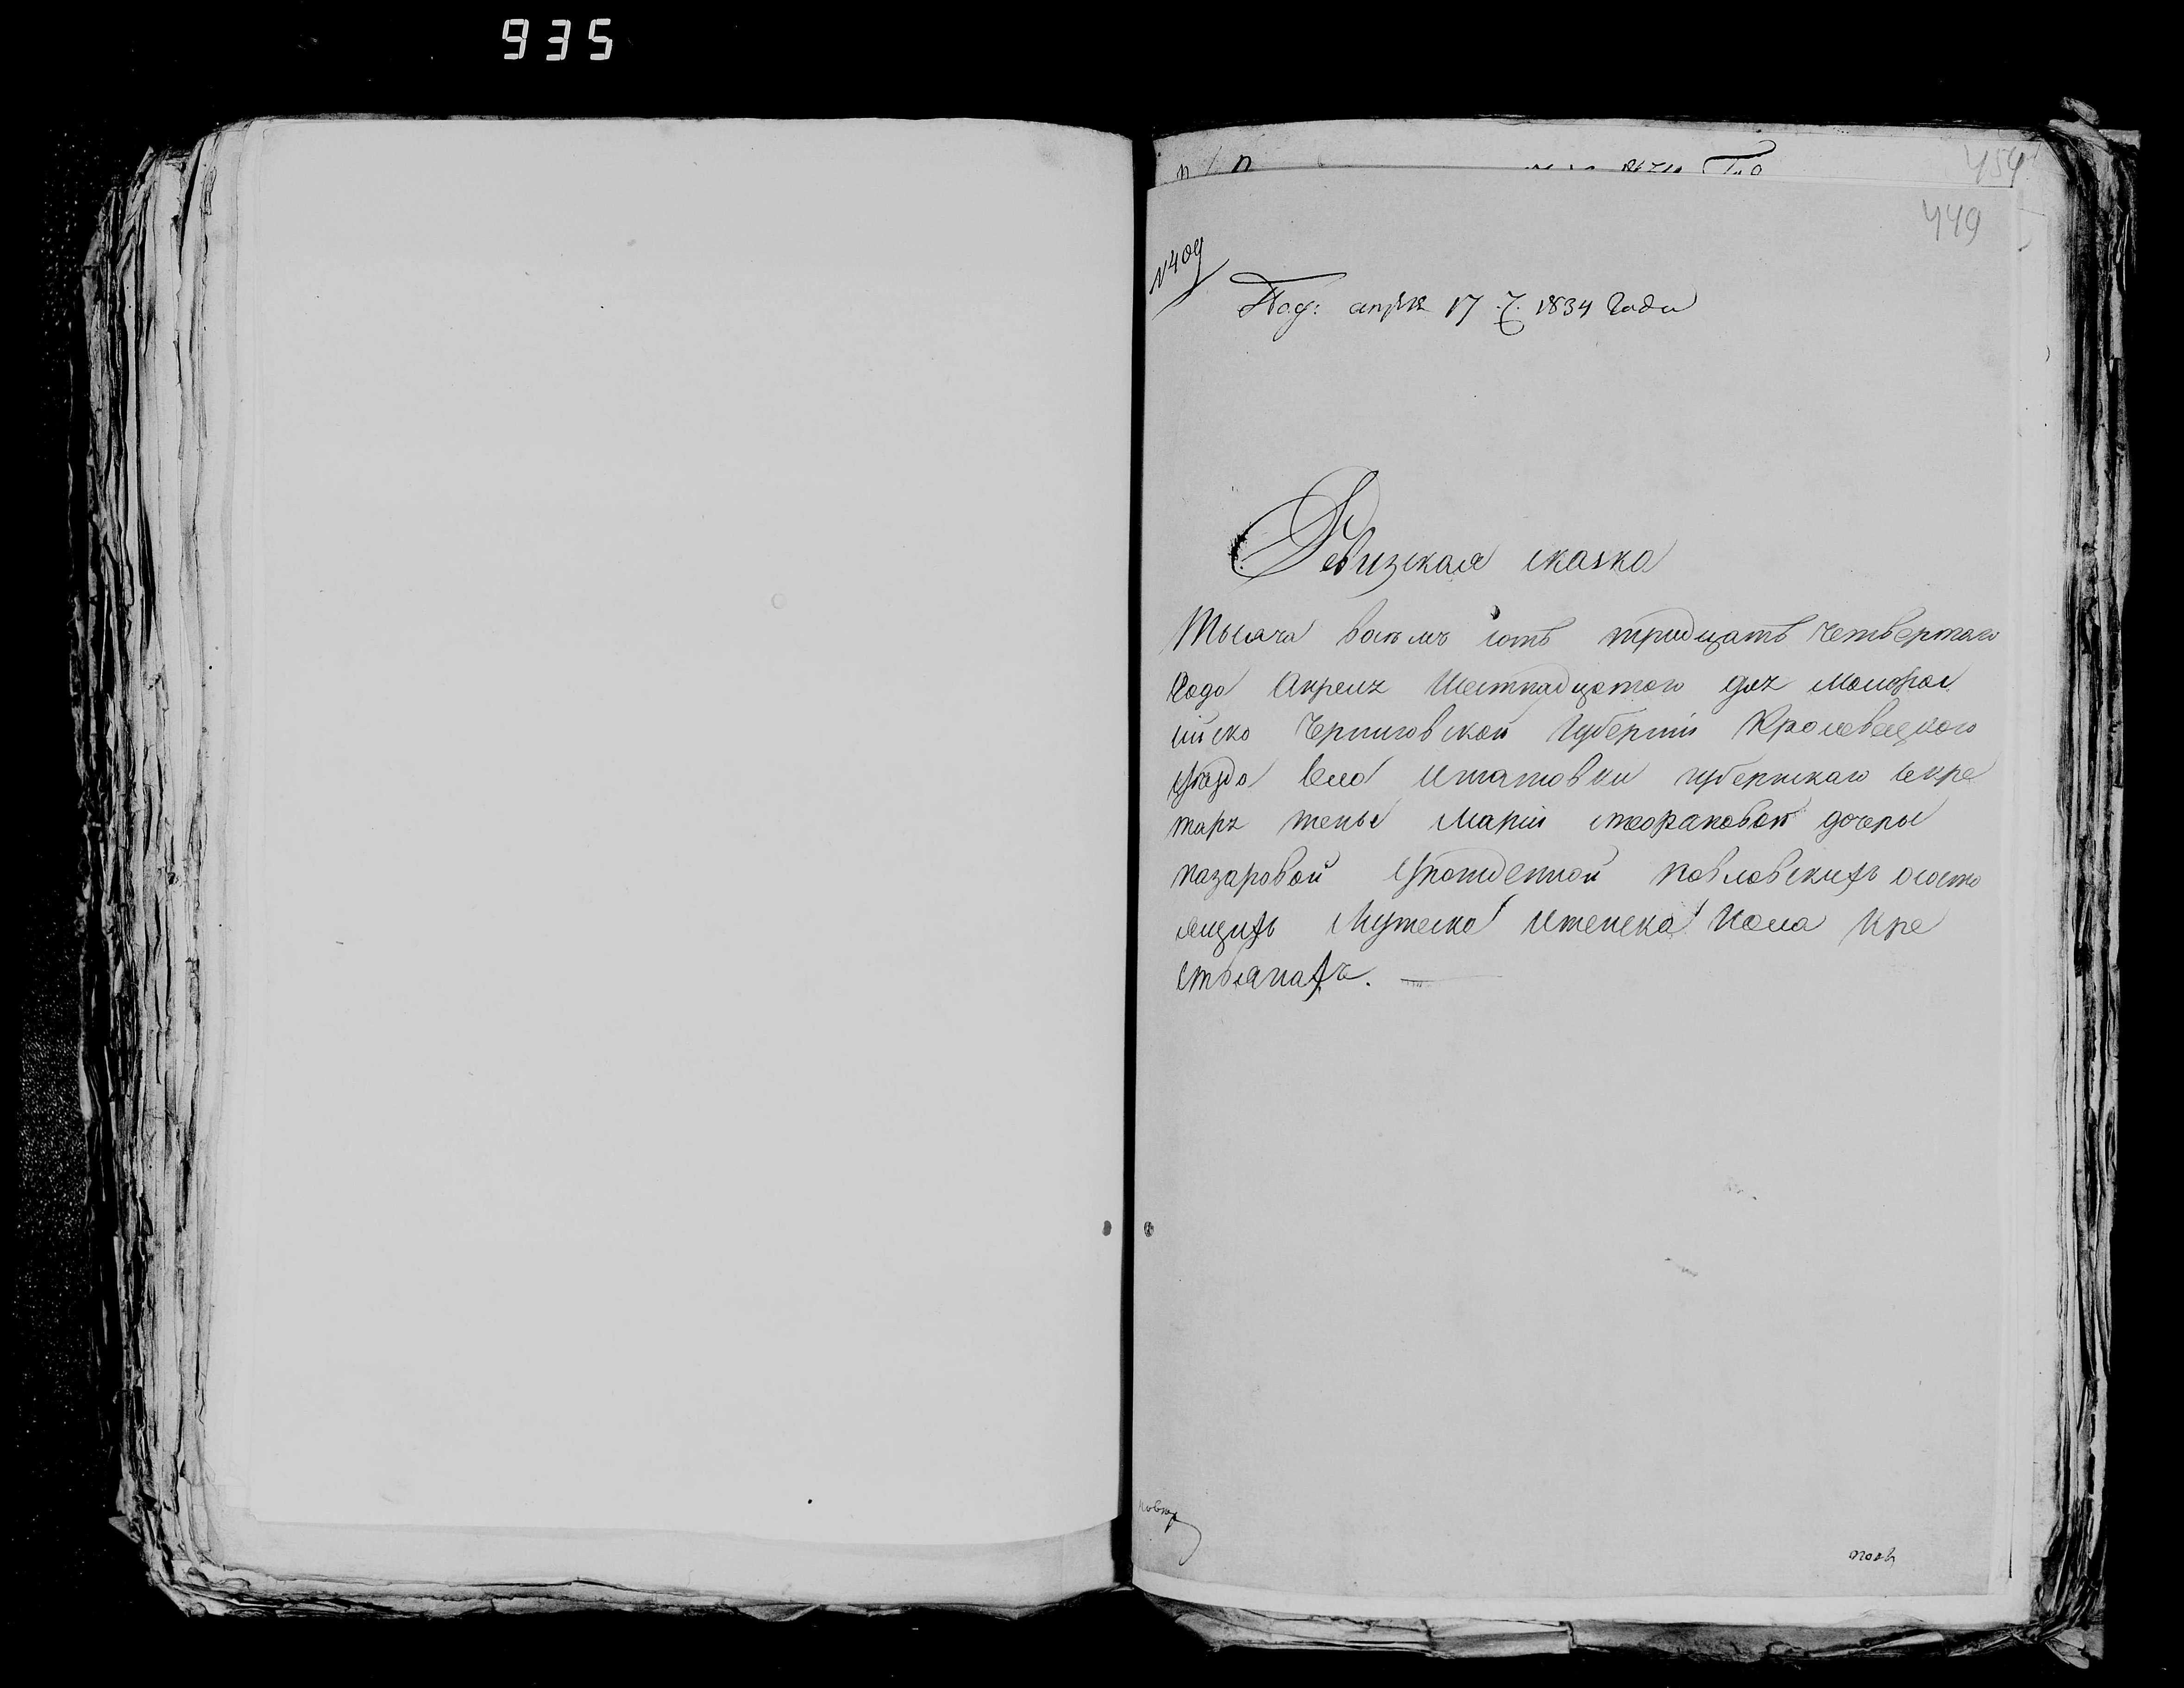 935
454
449
№409
Под: апреля 17 ч. 1834 года
Ревизская сказка
Тысяча восемъ сотъ тридцать четвертаго
года Апреля Шестнадцатого дня Малорос
ийско Черниговской Губернии Кролевецкого
уезда села губернскаго секре
таря жены Марии дочеры
назаровой урожденной павловскихъ ососто
ящихъ мужеска иженска пола кре
стьянахъ.